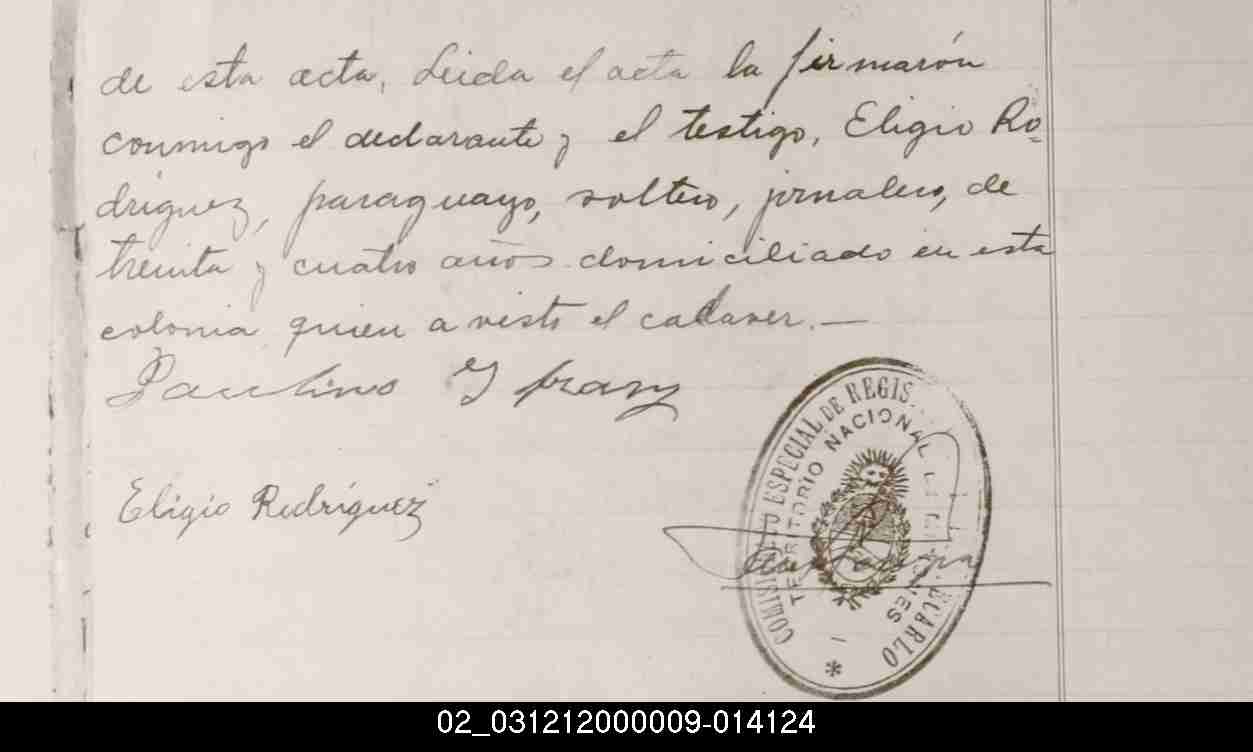 de esta acta. Leida el acta la firmarón
conmigo el declarante y el testigo, Eligio Ro=
dríguez, paraguayo, soltero, jornalero, de
treinta y cuatro años domiciliado en esta
colonia quien a visto el cadaver.—
Paulino Y
Eligio Rodríguez
COMISARIATO ESPECIAL DE REGIS
TERRITORIO NACIONAL
ECARLO
02_031212000009-014124